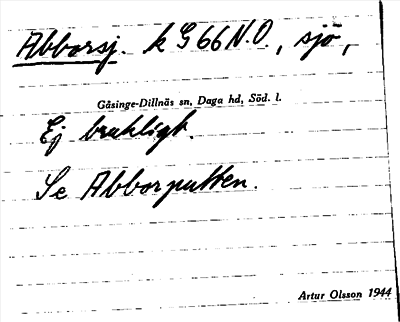 Abborsj. k G66 N.O., sjö,
Gåsinge-Dillnäs sn, Daga hd, Söd. l.
Ej brukligt.
Se Abborputten.
Artur Olsson 1944